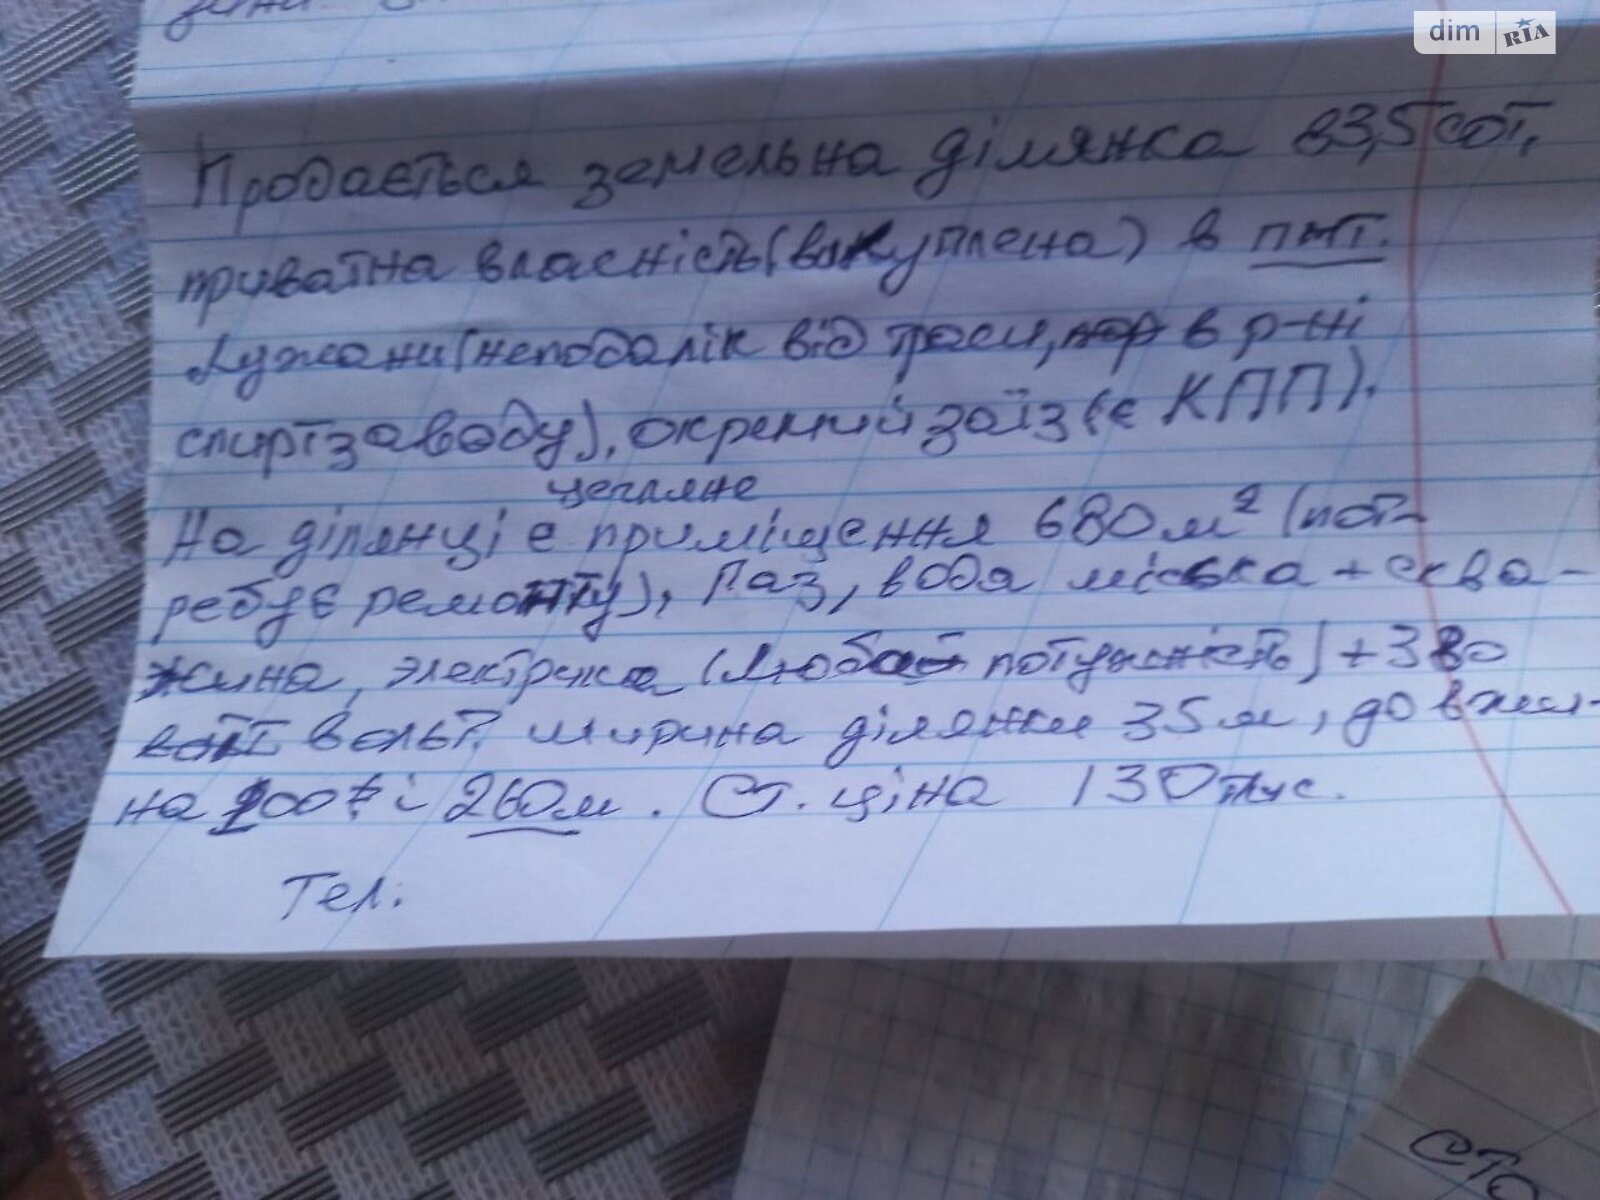 dim RIA
Продається земельна ділянка 83,5 сот,
приватна власність (викуплена) в пмт.
Лужани (неподалік від траси, в р-ні
спиртзаводу), окремий заїзд (є КПП).
цегляне
На ділянці є приміщення 680 м² (пот-
ребує ремонту), Газ, вода міська + сква-
жина, электрика (Любой потужність) + 380
вольт. ширина ділянки 35 м, довжи-
на 260 м. Ст. ціна 130 тис.
Тел.
СТО